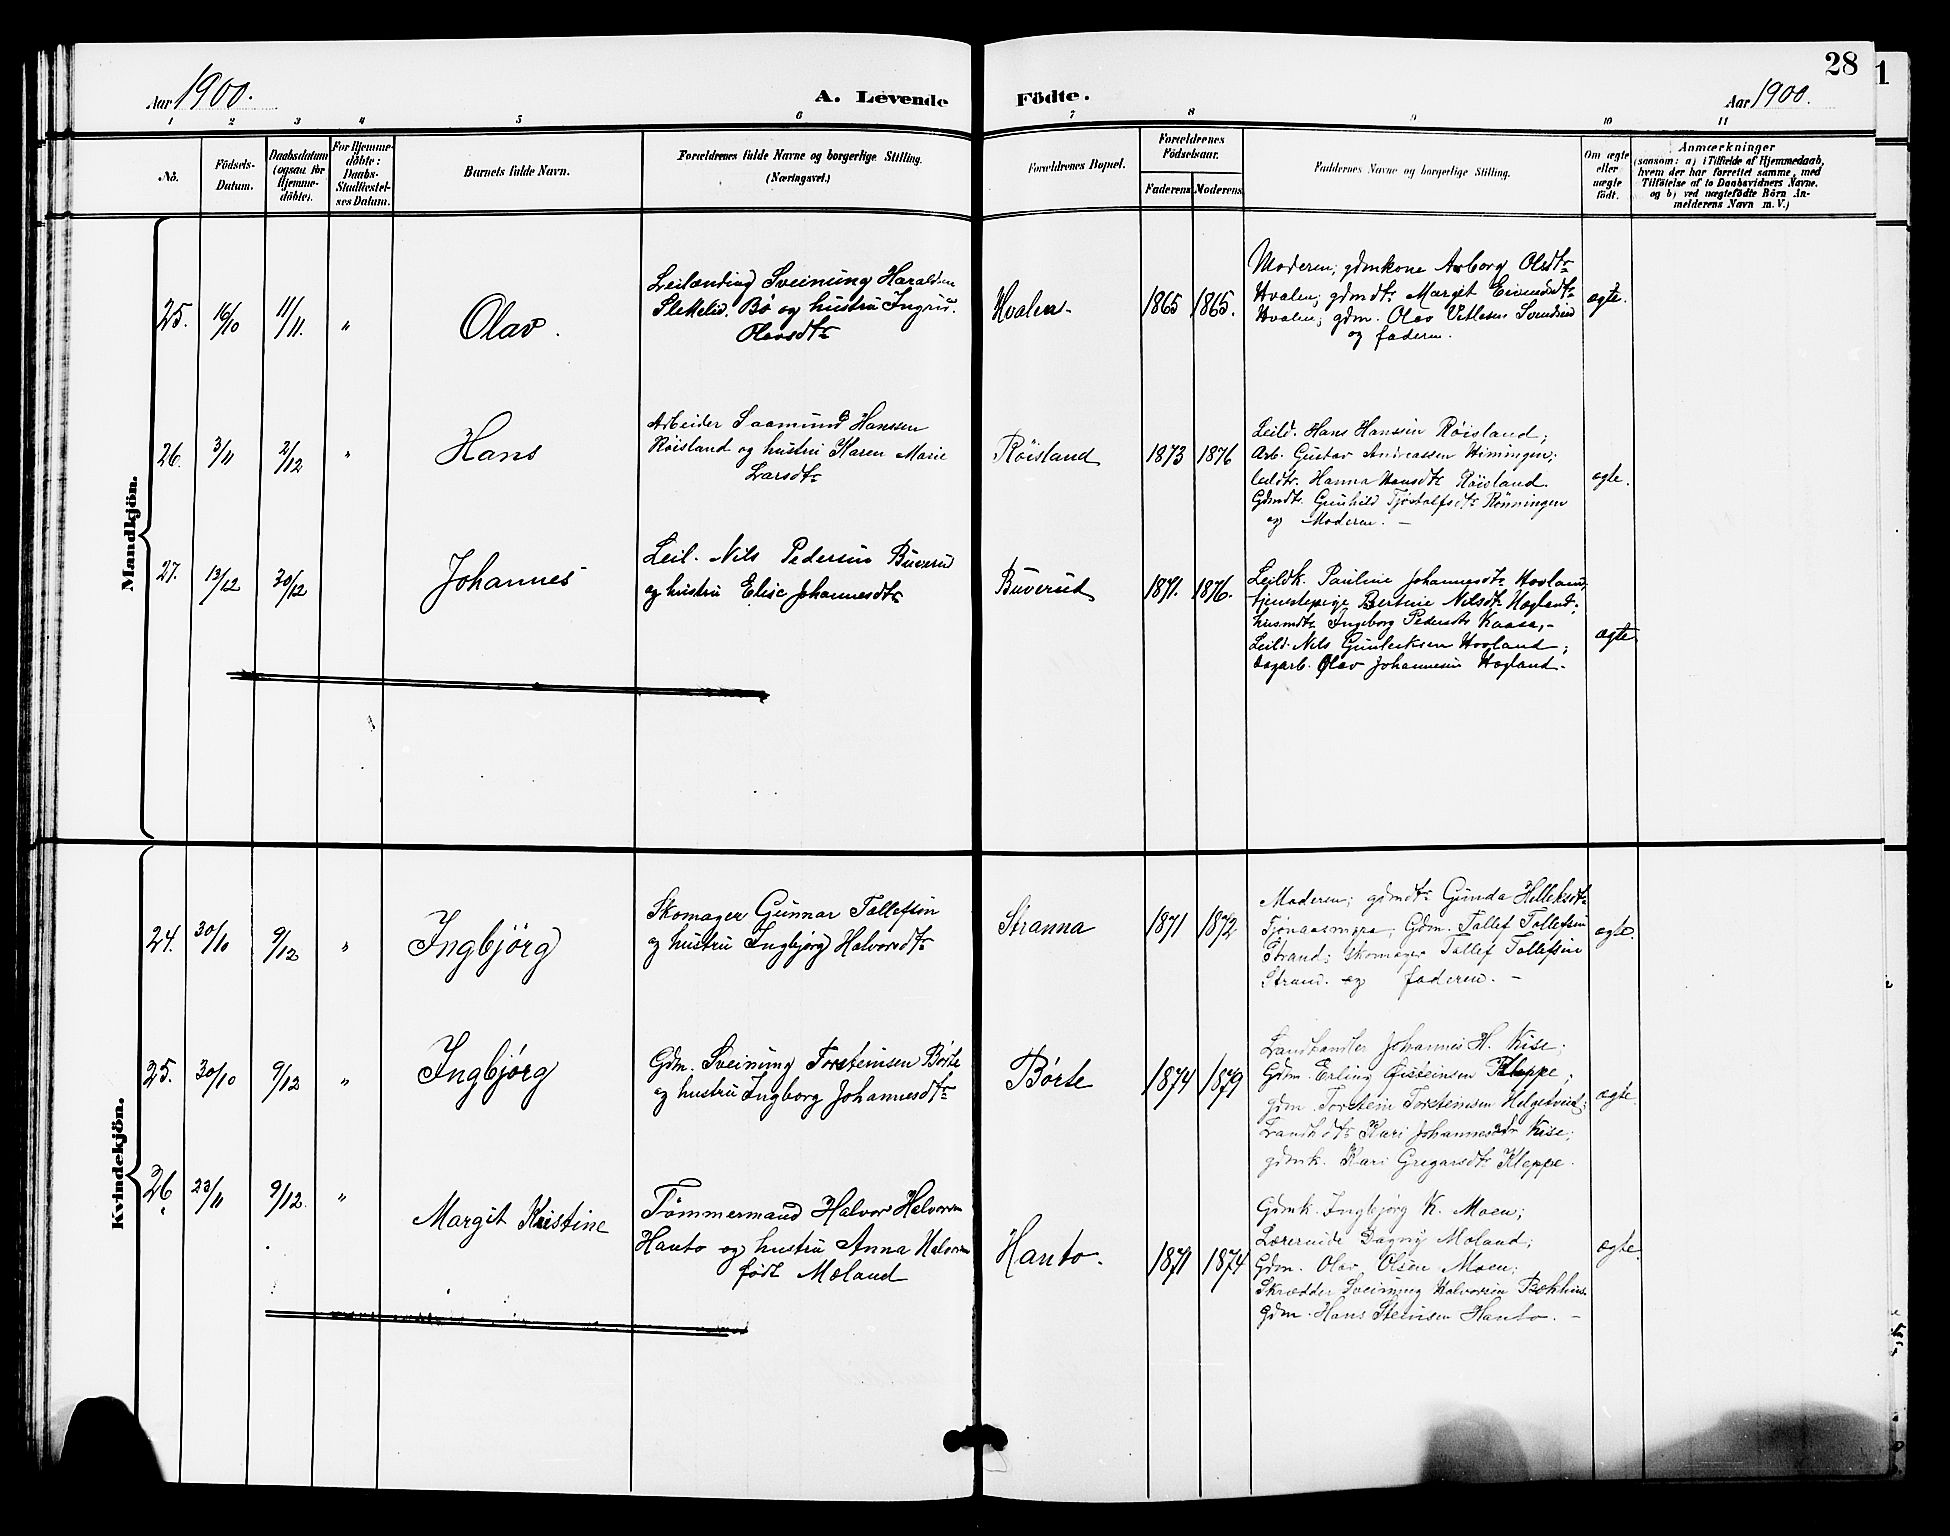 28
1
Aar 1900.
A. Levende Födte.
Aar 1900.
1 2 3 4 5 6 7 8 9 10 11
No.
Födsels-
Datum.
Daabsdatum
(ogsaa for
Hjemme-
döbte).
For Hjemme-
döbte:
Daabs-
Stadfæstel-
ses Datum.
Barnets fulde Navn.
Forældrenes fulde Navne og borgerlige Stilling.
(Næringsvei.)
Forældrenes Bopæl.
Forældrenes
Födselsaar.
Faderens Moderens
Faddernes Navne og borgerlige Stilling.
Om ægte
eller
uægte
födt.
Anmærkninger
(saasom: a) i Tilfælde af Hjemmedaab,
hvem der har forrettet samme, med
Tilföielse af to Daabsvidners Navne.
og b) ved uægtefödte Börn An-
melderens Navn m. V.)
Mandkjön.
25. 16/10 11/11. " Olav.
Leilænding Sveinung Haraldsen
Slettelid. Bø og hustru Ingrid
Olavsdtr
Hvalen. 1865 1865.
Moderen; gdmkone Aasborg Olsdtr
Hvalen; gdmdtr Margit Eivindsdtr
Hvalen; gdm. Olav Vetlesen
og faderen.
ægte.
26. 3/11 2/12 " Hans
Arbeider Saamund Hanssen
Røisland og hustru Karen Marie
Larsdtr
Røisland 1873 1876
Leild. Hans Hanssen Røisland;
Arb. Gustav Andreassen
Leildtr. Hanna Hansdtr Røisland.
Gdmdtr. Gunhild Tjøstolfsdtr Rønningen
og Moderen. —
ægte.
27. 13/12 30/12 Johannes
Leil. Nils Pedersen Buverud
og hustru Elise Johannesdtr
Buverud 1871. 1876.
Leildk. Pauline Johannesdtr Hogland;
tjenstepige Bertine Nilsdtr Hogland;
husmdtr Ingeborg Pedersdtr Kaasa, -
Leild. Nils Gunleiksen Hogland;
Dagarb. Olav Johannesen Hogland.
ægte
Kvindekjön.
24. 30/10 9/12 " Ingbjörg
Skomager Gunnar Tollefsen
og hustru Ingbjørg Halvorsdtr
Stranna 1871 1872
Moderen; gdmdtr Gunda Helleksdtr
Gdm. Tollef Tollefsen
Strand; skomager Tollef Tollefsen
Strand. og faderen. —
ægte.
25. 30/10 9/12 " Ingbjörg
Gdm. Sveinung Torsteinsen Börte
og hustru Ingborg Johannesdtr
Børte 1874 1879
Landhandler Johannes H. Kise;
Gdm. Erling Øisteinsen Kleppe;
gdm. Torstein Torsteinsen Helgetveit;
Landhdtr Kari Johannesdtr Kise;
gdmk. Kari Gregarsdtr Kleppe.
ægte.
26. 23/11 9/12. " Margit Kristine
Tømmermand Halvor Halvorsen
Hanto og hustru Anna Halvorsen
født Moland
Hanto. 1871 1874
Gdmk. Ingbjørg K. Moen;
Lærerinde Dagny Moland;
Gdm. Olav Olsen Moen;
Skrædder Sveinung Halvorsen Bækhus.
Gdm. Hans Steinsen Hanto. —
ægte.